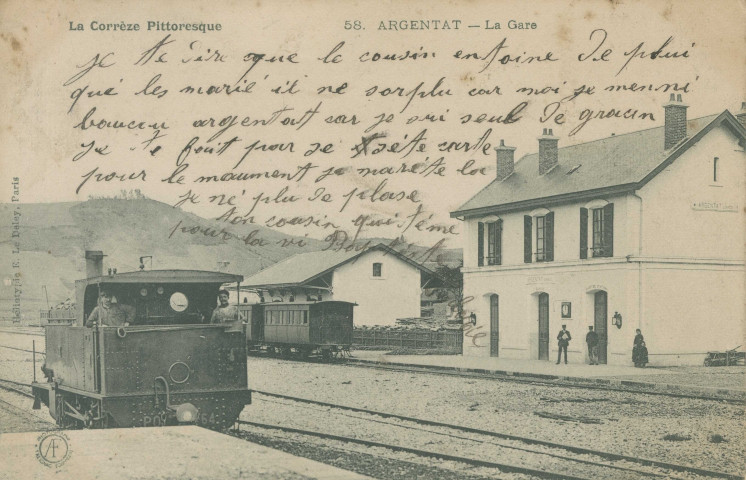 La Corrèze Pittoresque
58. ARGENTAT — La Gare
je te dire que le cousin entoine de plui
qué les marié il ne sorplu car moi je menni
baucou argentat car je sui seul De gracin
je te fait pour se sète carte
pour le maument je marète la
je né plu de plase
ton cousin qui téme
pour la vi
ARGENTAT
Héliotypie E. Le Deley, Paris
PO